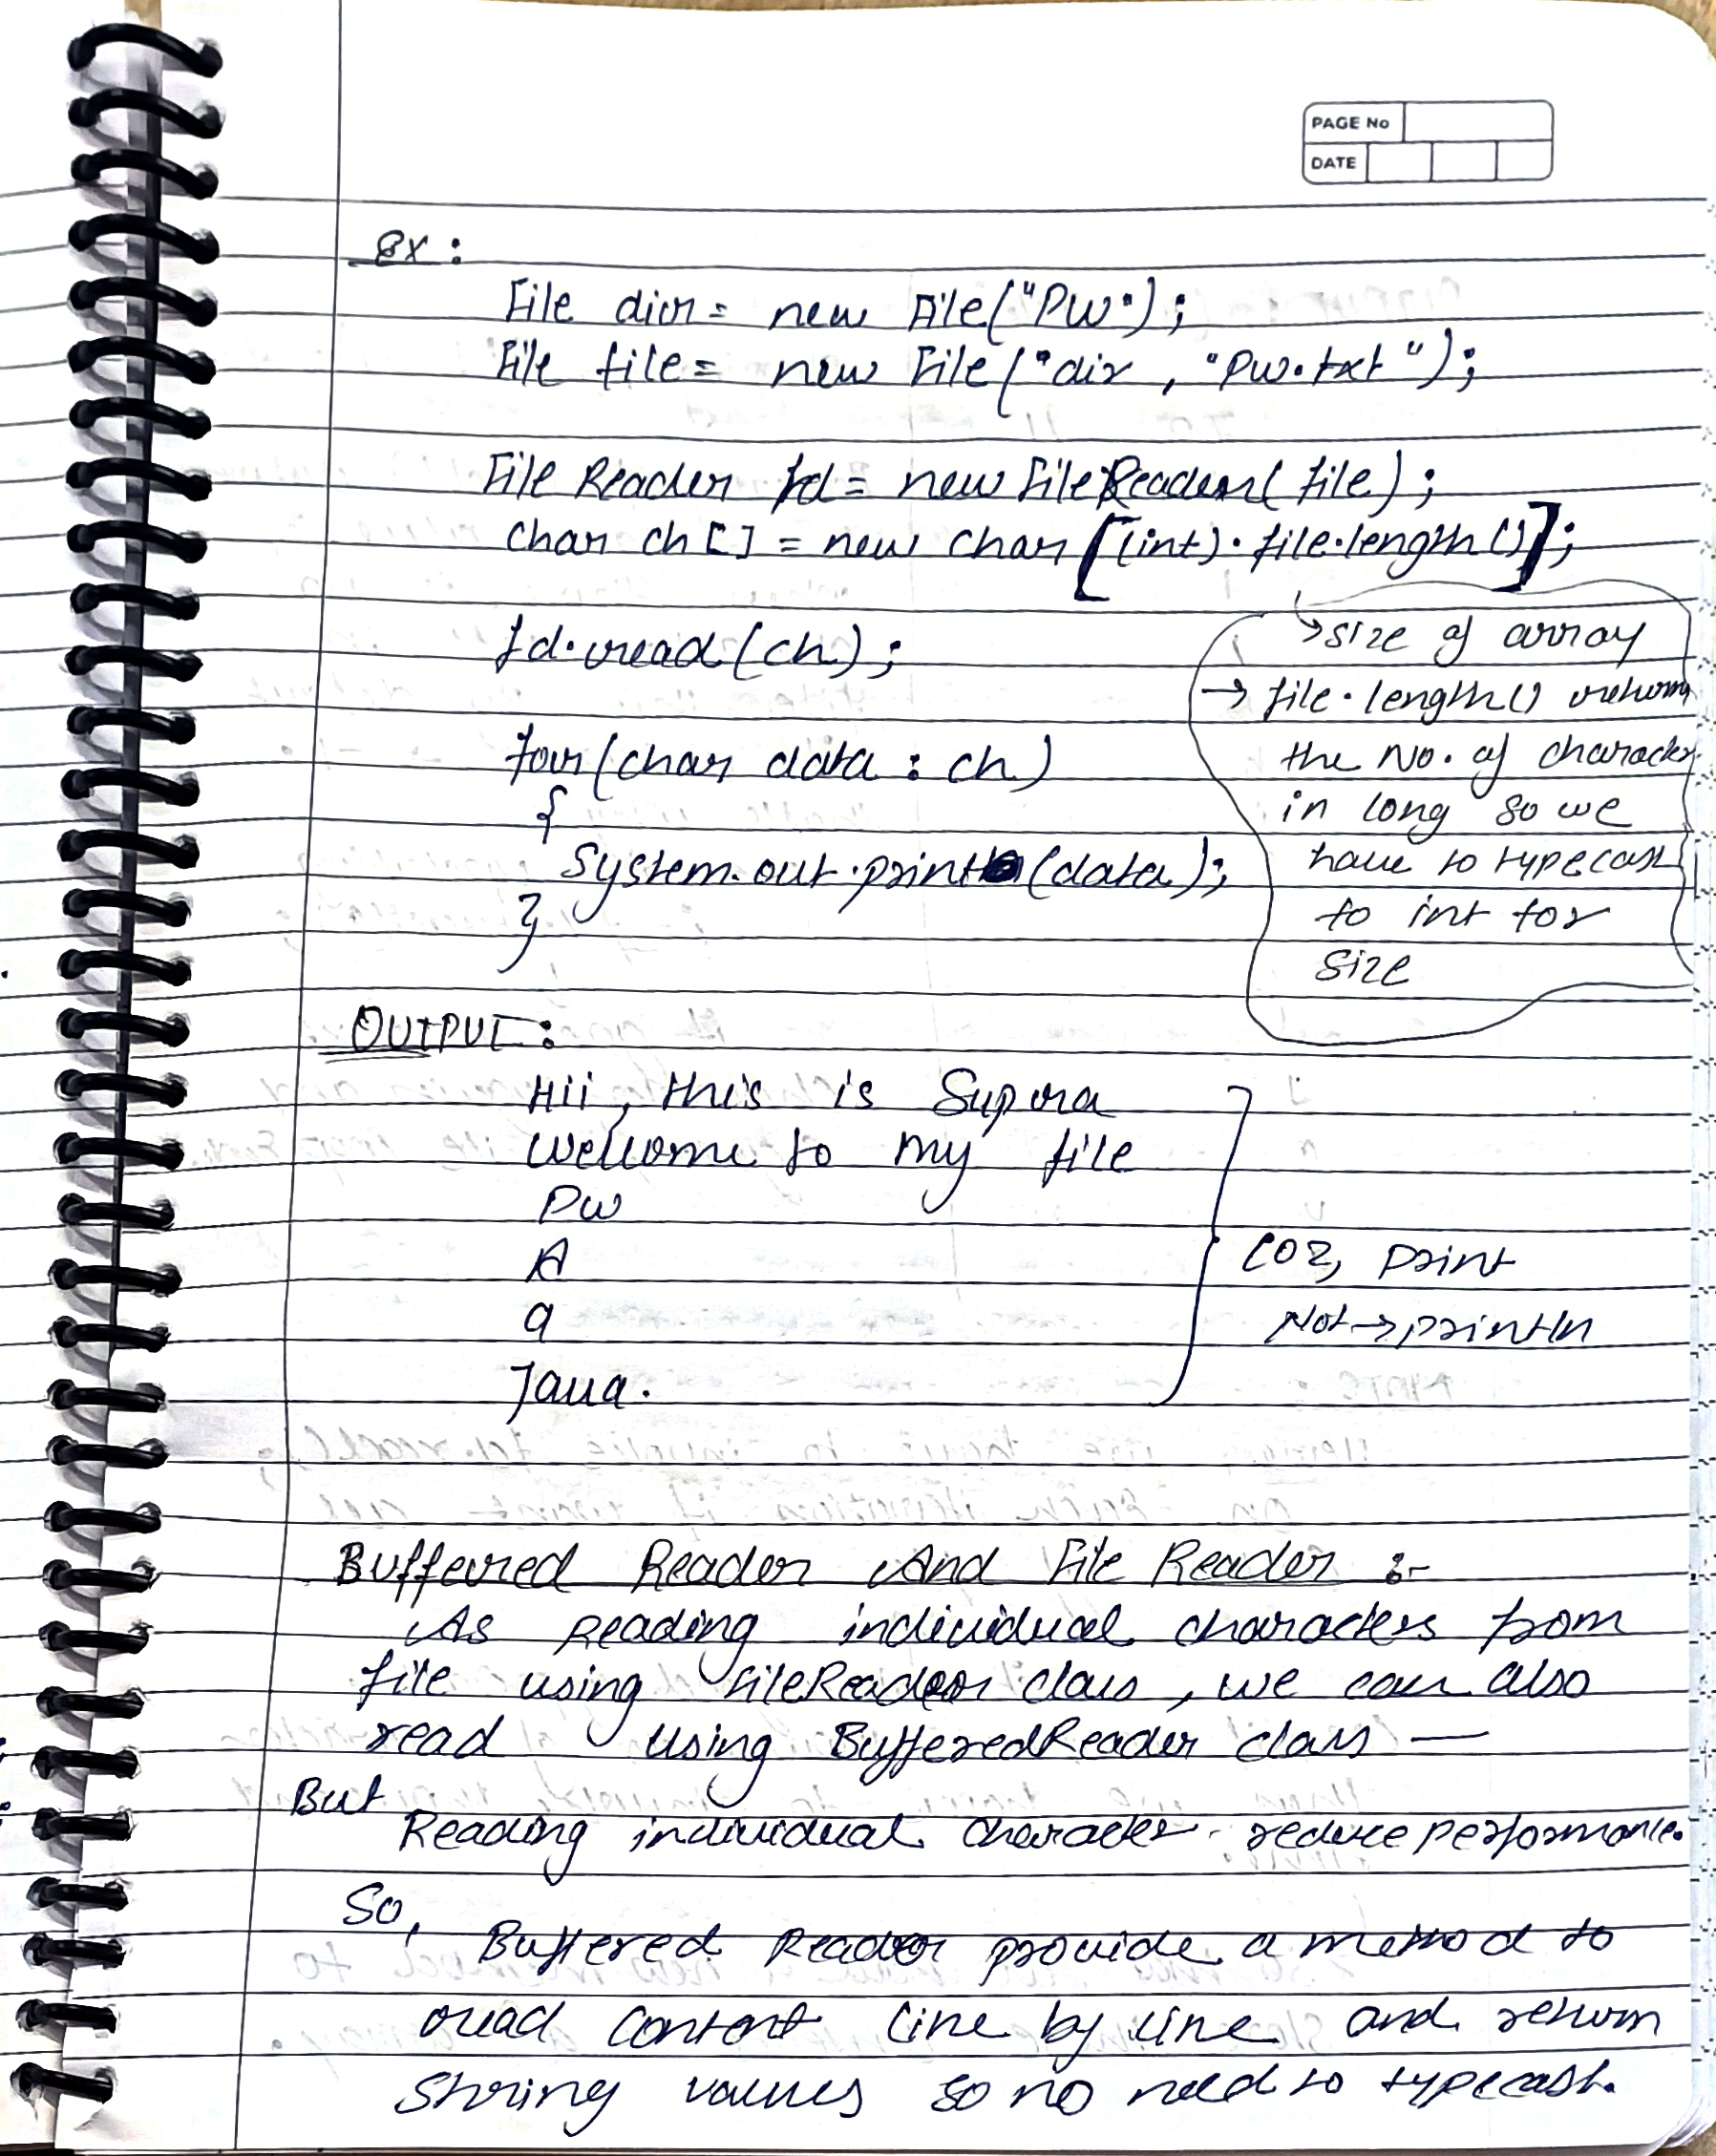 PAGE No
DATE
ex :
File dir = new File("PW");
File file = new File("dir , "PW.txt");
File Reader fd = new FileReader( file );
char ch [ ] = new char [(int) . file.length()];
→ size of array
fd.read (ch);
→ file.length() return
for (char data : ch)
the No. of character
{
in long so we
System.out.print (data);
have to typecast
}
to int for
size
OUTPUT :
Hii , this is Supra
Welcome to my file
PW
A
coz, print
a
Not → println
Java.
Buffered Reader And File Reader :-
As Reading individual characters from
file using FileReader class , we can also
read using BufferedReader class —
But
Reading individual character reduce performance.
So,
Buffered Reader provide a method to
read content line by line and return
String values so no need to typecast.